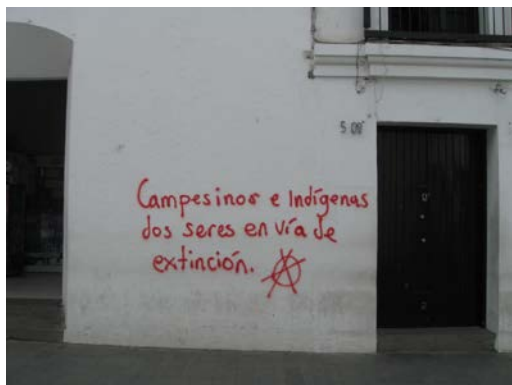 Campesinos e Indígenas
dos seres en vía de
extinción.